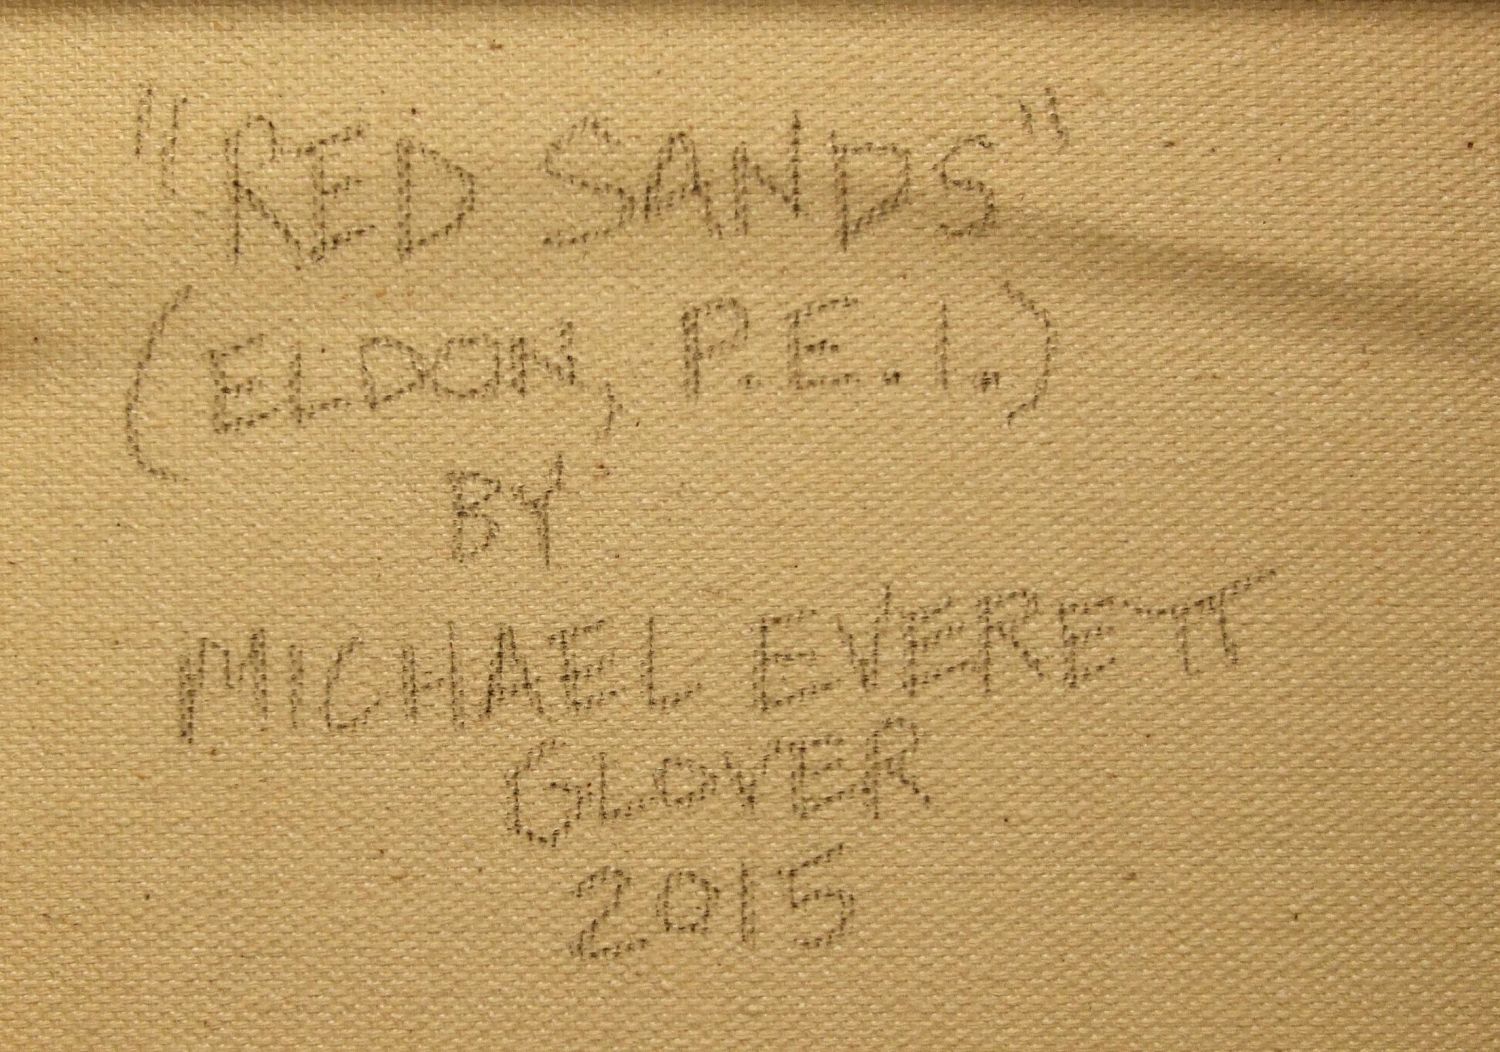 "RED SANDS"
(ELDON, P.E.I.)
BY
MICHAEL EVERETT
GLOVER
2015